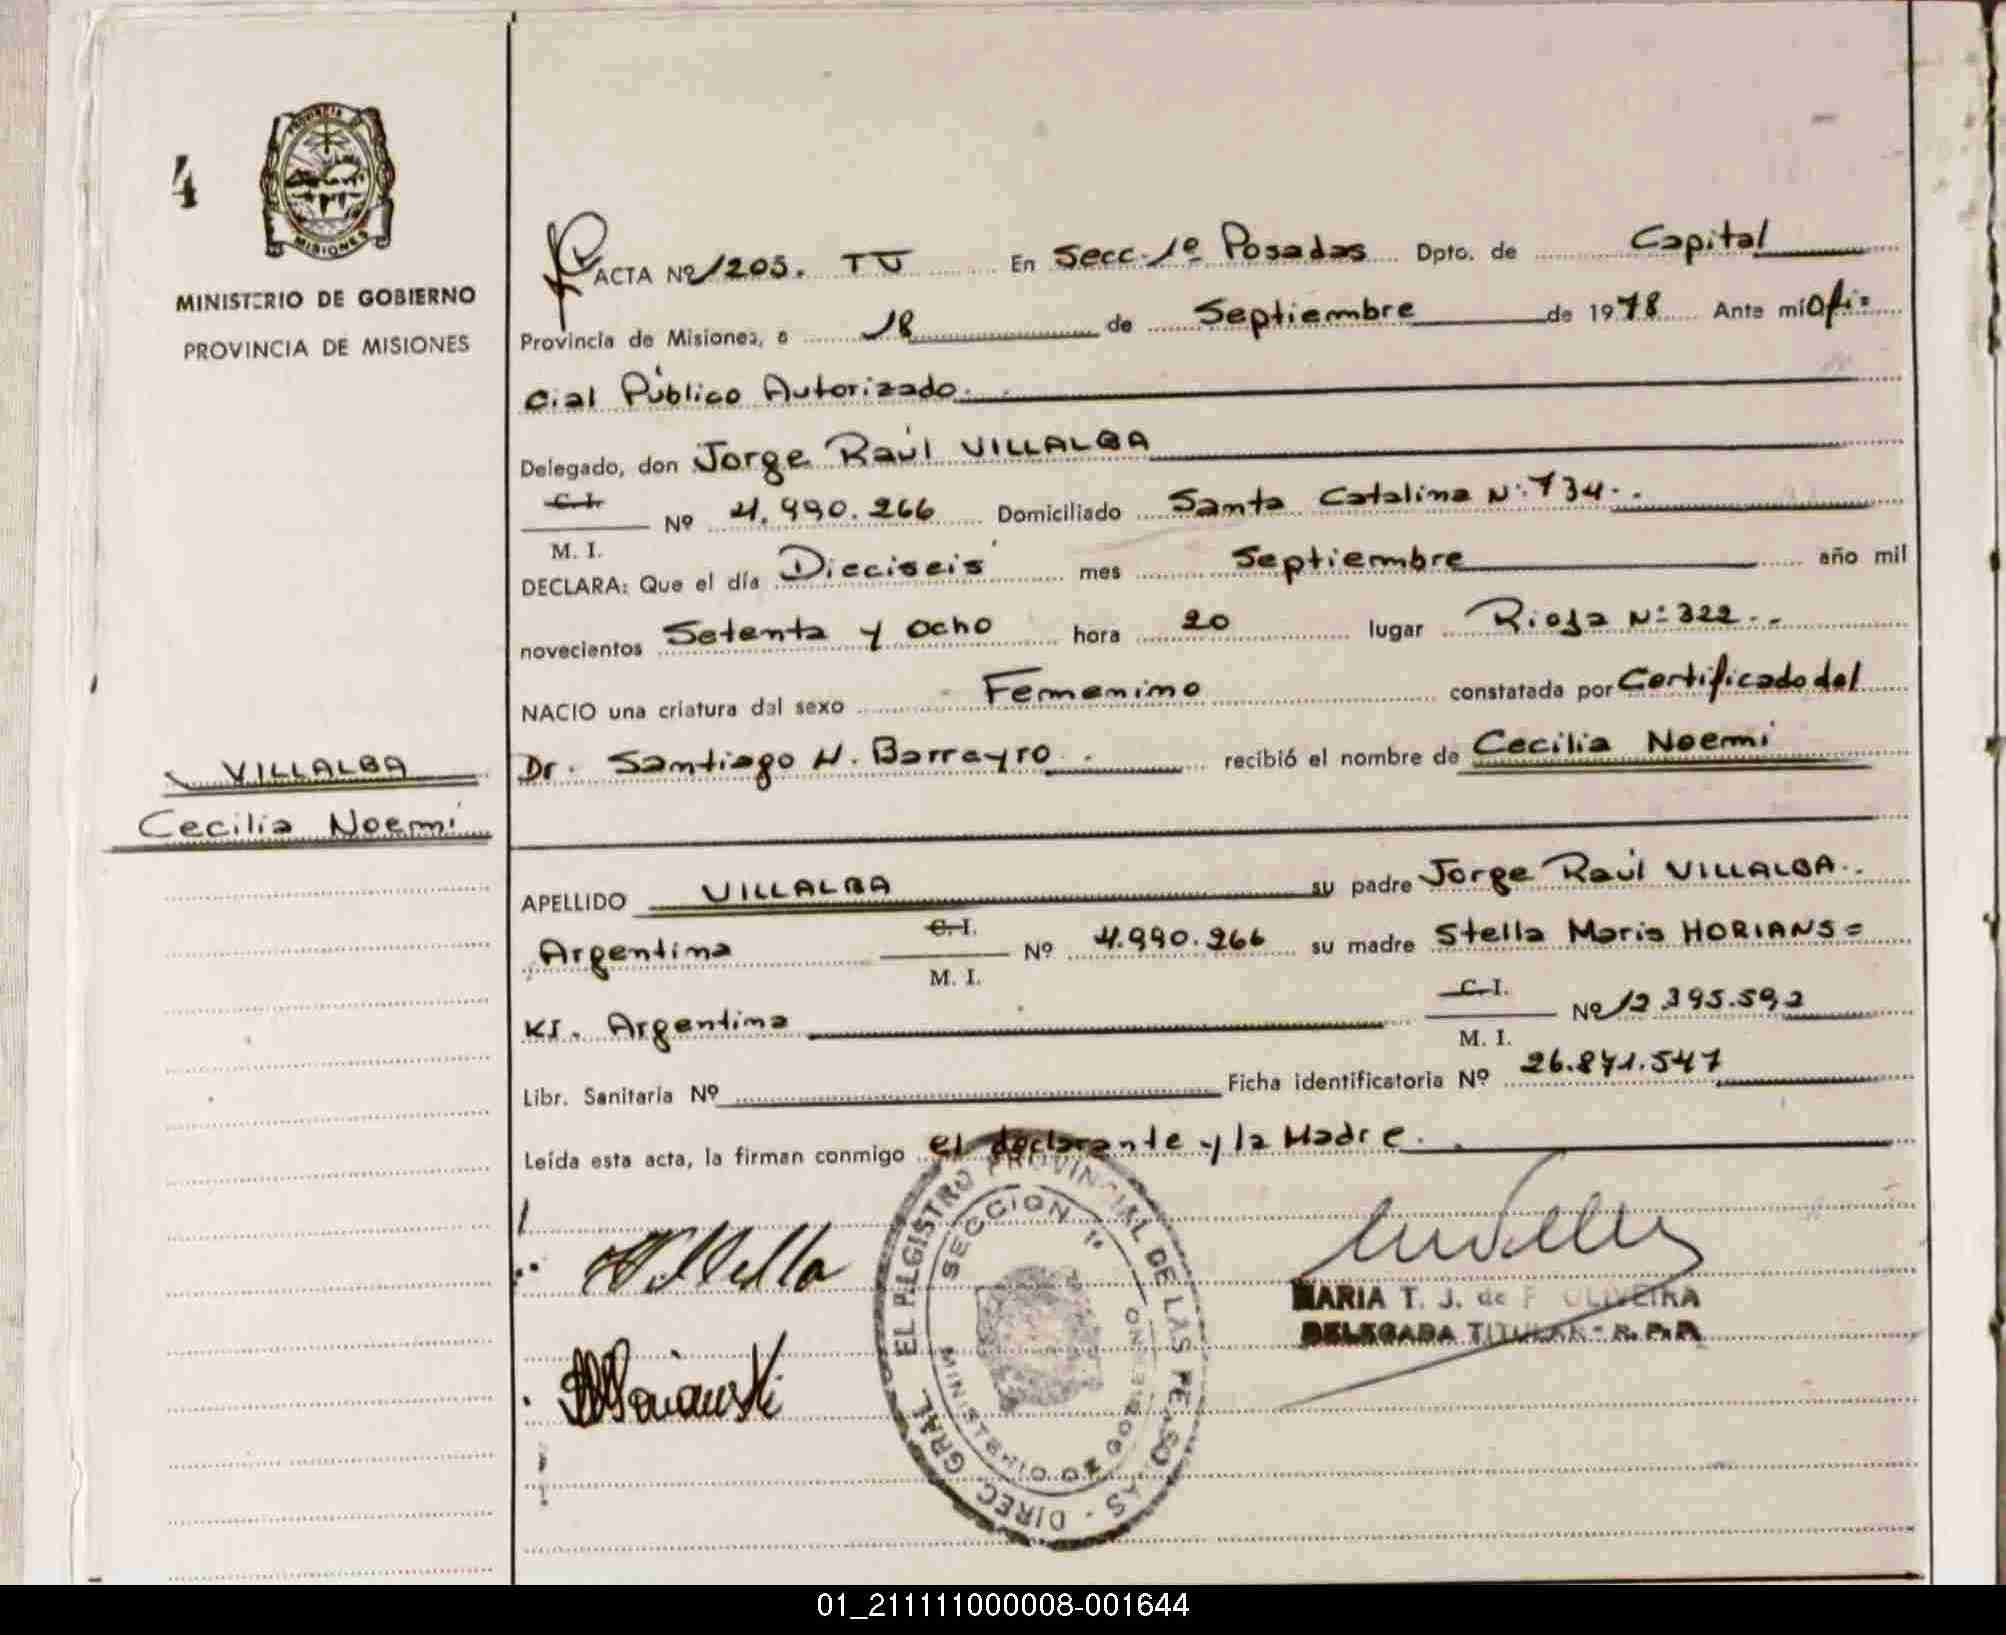 4
PROVINCIA DE
MISIONES
MINISTERIO DE GOBIERNO
PROVINCIA DE MISIONES
ACTA Nº 1205. TU En Secc. 1º Posadas Dpto. de Capital
Provincia de Misiones, a 18 de Septiembre de 1978 Ante mí Ofi=
cial Público Autorizado.
Delegado, don Jorge Raúl VILLALBA
C. I.
M. I. Nº 4.990.266 Domiciliado Santa Catalina Nº 734.
DECLARA: Que el día Dieciseis mes Septiembre año mil
novecientos Setenta y Ocho hora 20 lugar Rioja Nº 322.
NACIO una criatura del sexo Femenino constatada por Certificado del
Dr. Santiago H. Barreyro recibió el nombre de Cecilia Noemí
VILLALBA
Cecilia Noemí
APELLIDO VILLALBA su padre Jorge Raúl VILLALBA.
Argentina C. I.
M. I. Nº 4.990.266 su madre Stella Maris HORIANS=
KI. Argentina C. I.
M. I. Nº 12.395.592
Libr. Sanitaria Nº Ficha identificatoria Nº 26.871.547
Leída esta acta, la firman conmigo el declarante y la Madre.
DIREC. GRAL. DEL REGISTRO PROVINCIAL DE LAS PERSONAS
SECCION 1ª
MINISTERIO DE GOBIERNO
MARIA T. J. de F. OLIVEIRA
DELEGADA TITULAR - R. P. P.
01_211111000008-001644